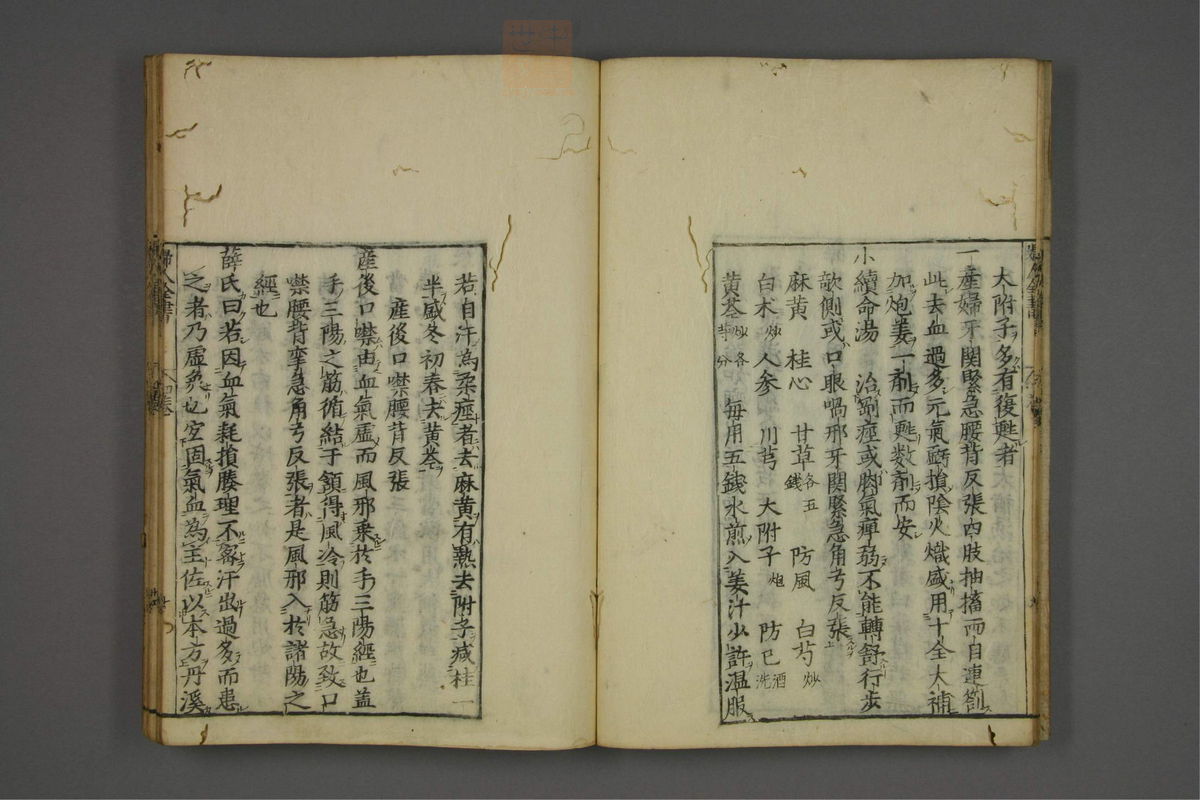 大附子多有復甦者
一産婦牙関緊急腰背反張四肢抽搐而目連劄
此去血過多元氣虧損陰火熾盛用十全大補
加炮姜一剤而甦数剤而安
小續命湯　治剛痓或脚氣痺弱不能轉舒行歩
欹側或口眼喎邪牙関緊急角弓反張
麻黄　桂心　甘草各五錢　防風　白芍炒
白朮炒　人参　川芎　大附子炮　防已酒洗
黄芩炒各半分　毎用五錢水煎入姜汁少許温服
若自汗為柔痓者去麻黄有熱去附子減桂一
半盛冬初春去黄芩
産後口噤腰背反張
産後口噤由血氣虚而風邪乗於手三陽經也盖
手三陽之筋循結于頷得風冷則筋急故致口
噤腰背攣急角弓反張者是風邪入於諸陽之
經也
薛氏曰若因血氣耗損腠理不密汗出過多而患
之者乃虚象也宜固氣血為主佐以本方丹溪